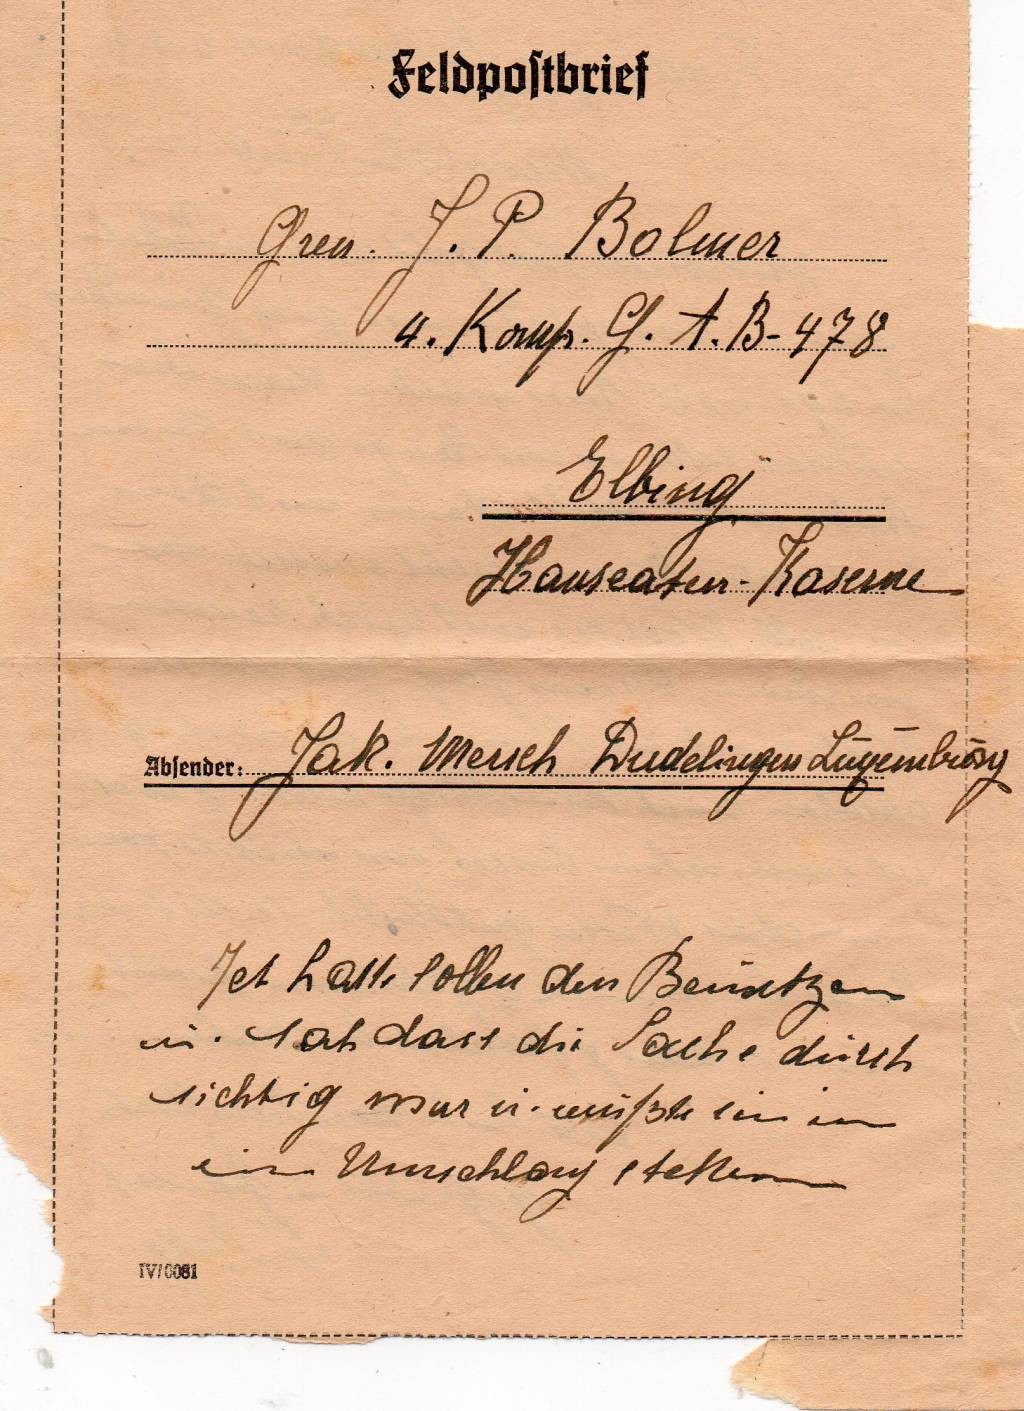 Feldpostbrief
Gren. J. P. Bolmer
4. Komp. G. A. B- 478
Elbing
Hanseaten-Kaserne
Absender: Jak. Mersch Dudelingen Luxemburg
Ich hatte sollen den Benützen
u. sah dass die Sache durch
sichtig war u. mußte ein in
ein Umschlag stekken
IV/0081